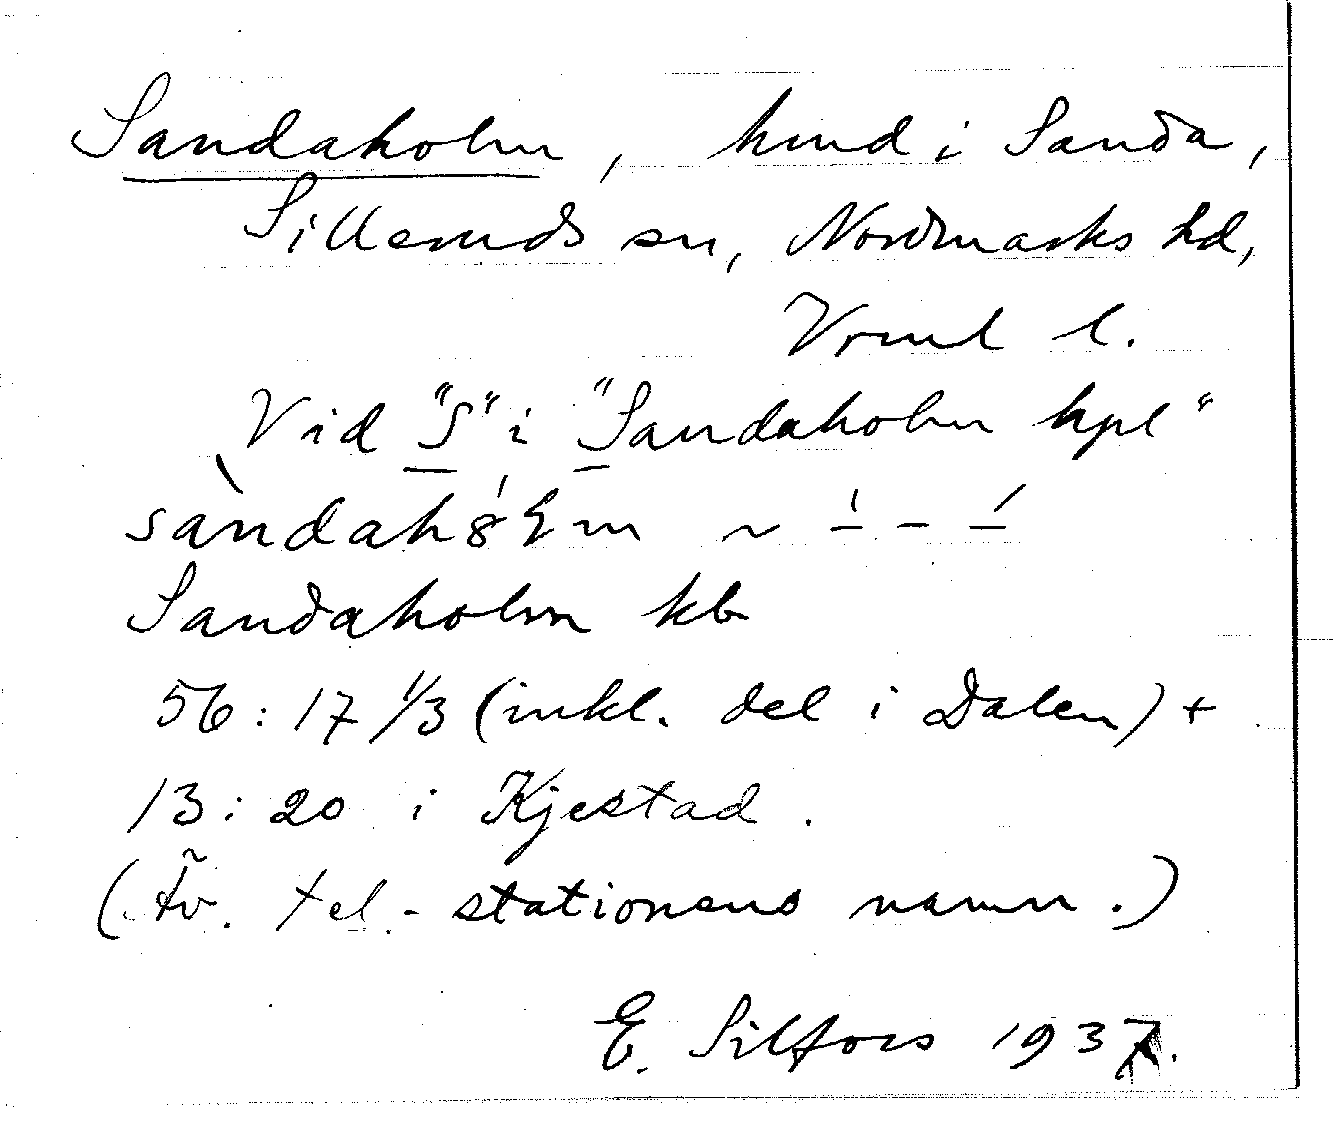 Sandaholm, hmd i Sanda,
Silleruds sn, Nordmarks hd,
Vrml l.
Vid "S" i "Sandaholm kpl"
Sandaholm kb
56:17 1/3 (inkl. del i Dalen) +
13:20 i Kjestad.
(Äv. tel.-stationens namn.)
E. Silfors 1937.